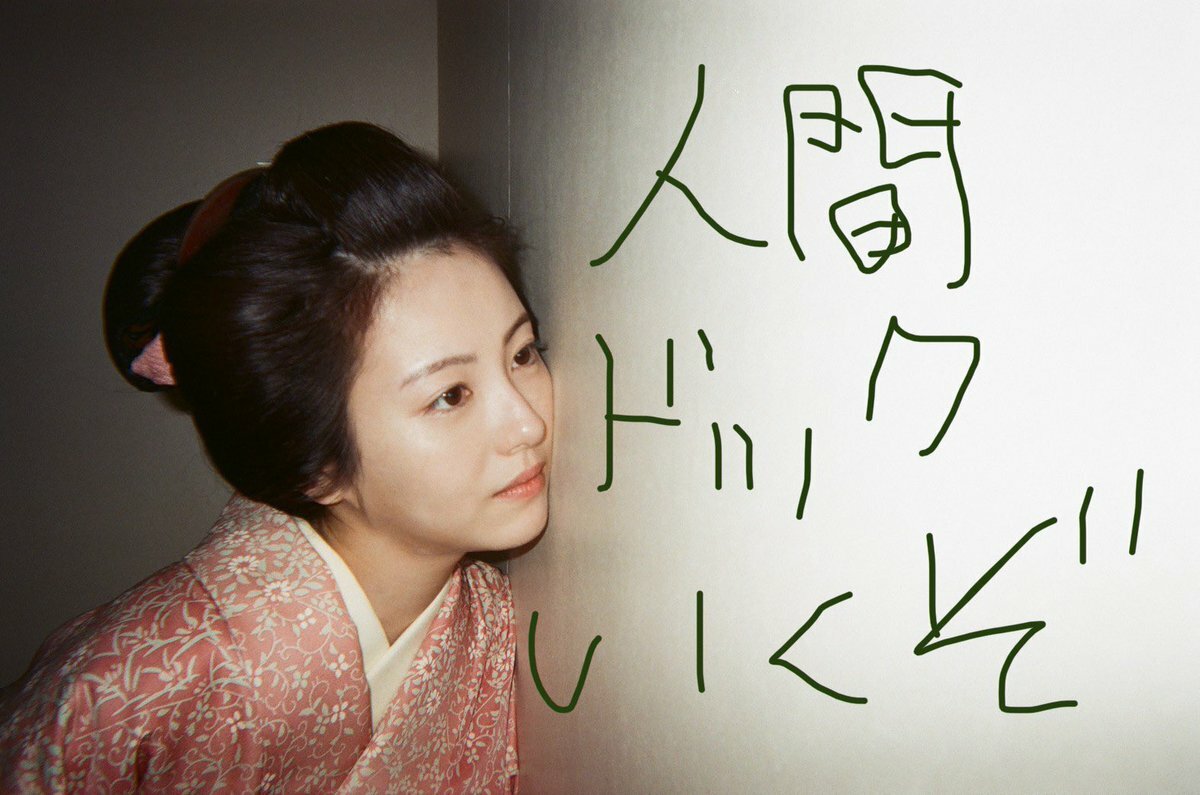 人間
ドック
いくぞ